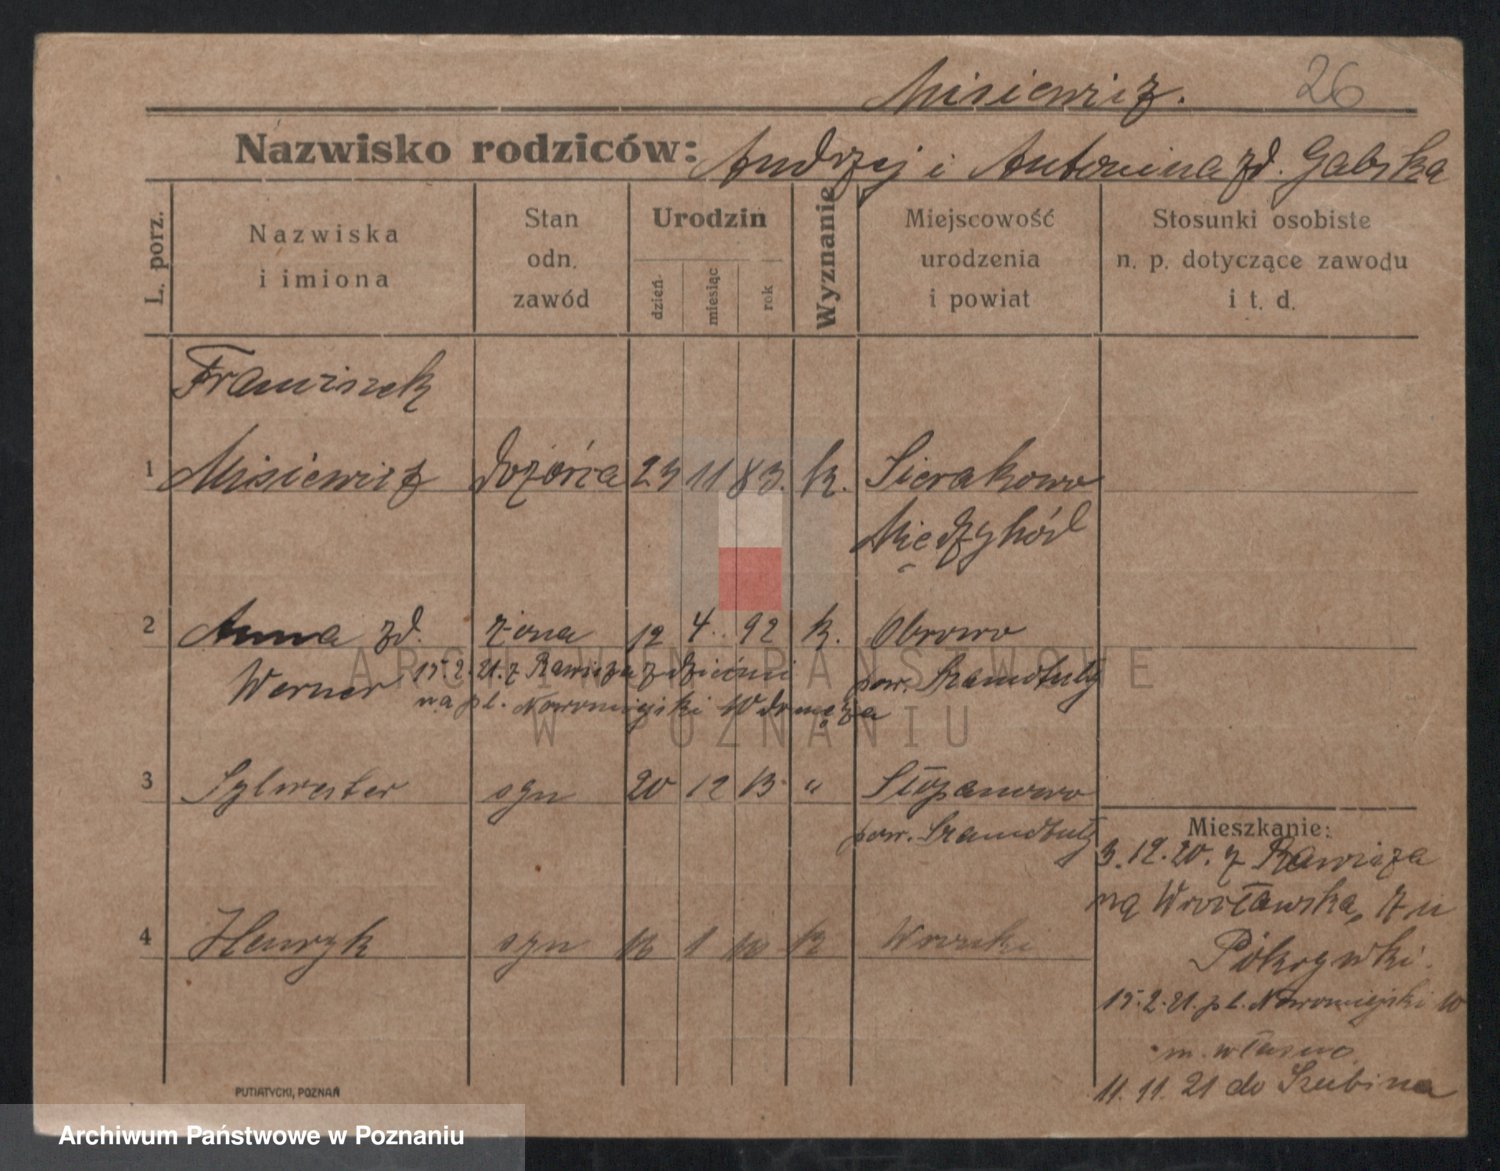 Misiewicz.
26
Nazwisko rodziców: Andrzej i Antonina zd. Gabska
L. porz.
Nazwiska i imiona
Stan odn. zawód
Urodzin
dzień
miesiąc
rok
Wyznanie
Miejscowość urodzenia i powiat
Stosunki osobiste n. p. dotyczące zawodu i t. d.
Franciszek
1 Misiewicz dozorca 23 11 83. k. Sierakowo
Międzychód
2 Anna zd. żona 12 4. 92 k. Obrowo
Werner 15.2.21. z Rawicza z dziećmi pow. Szamotuły
na pl. Nowomiejski 10 do męża
3 Sylwester syn 20 12 13. " Stopanowo
pow. Szamotuły
Mieszkanie:
3.12.20. z Rawicza
na Wrocławska, 7 u
4 Henryk syn 1 Wronki
15.2.21. pl. Nowomiejski 10
m. własne
11. 11. 21 do Szubina
PUTIATYCKI, POZNAŃ
ARCHIWUM PAŃSTWOWE
W POZNANIU
Archiwum Państwowe w Poznaniu